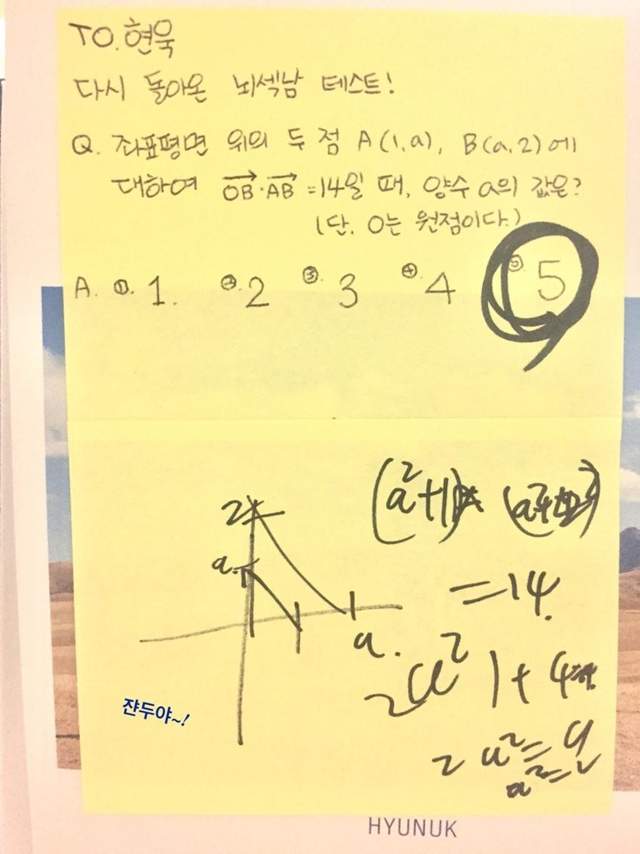 TO.현욱
다시 돌아온 뇌섹남 테스트!
Q. 좌표평면 위의 두 점 A(1,a), B(a,2)에
대하여 OB·AB =14일 때, 양수 a의 값은?
(단, O는 원점이다.)
A. ①. 1. ②. 2 ③. 3 ④. 4 ⑤. 5
(a²+1)
=14.
2
a.
a.
2a² 1+4
쟌두야~!
2a²=9
a²=9
HYUNUK